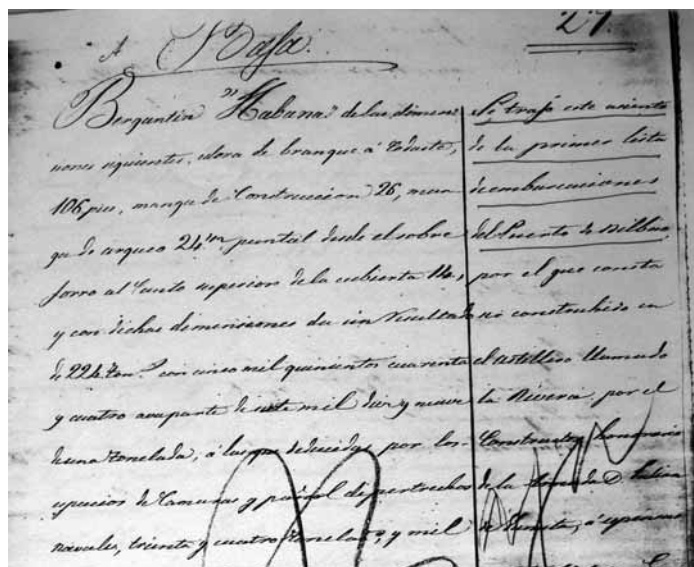 27.
A Baja.
Bergantin "Habana" de las dimen
siones siguientes, eslora de branque á codaste,
106 pies, manga de Construccion 26, man
ga de arqueo 24 puntal desde el sobre
forro al Canto superior de la cubierta 14,
y con dichas dimensiones da un resultado
de 224 ton.s con cinco mil quinientos cuarenta
y cuatro avaparte de siete mil diez y nueve
de una tonelada, á las que deducidas por los
espacios de Camaras y pañol de pertrechos
navales, treinta y cuatro toneladas, y mil
Se trajo este asiento
de la primer lista
de embarcaciones
del Puerto de Bilbao
por el que consta
se construhido en
el astillero llamado
la Rivera por el
Constructor honorario
de la Armada D.
á espensas